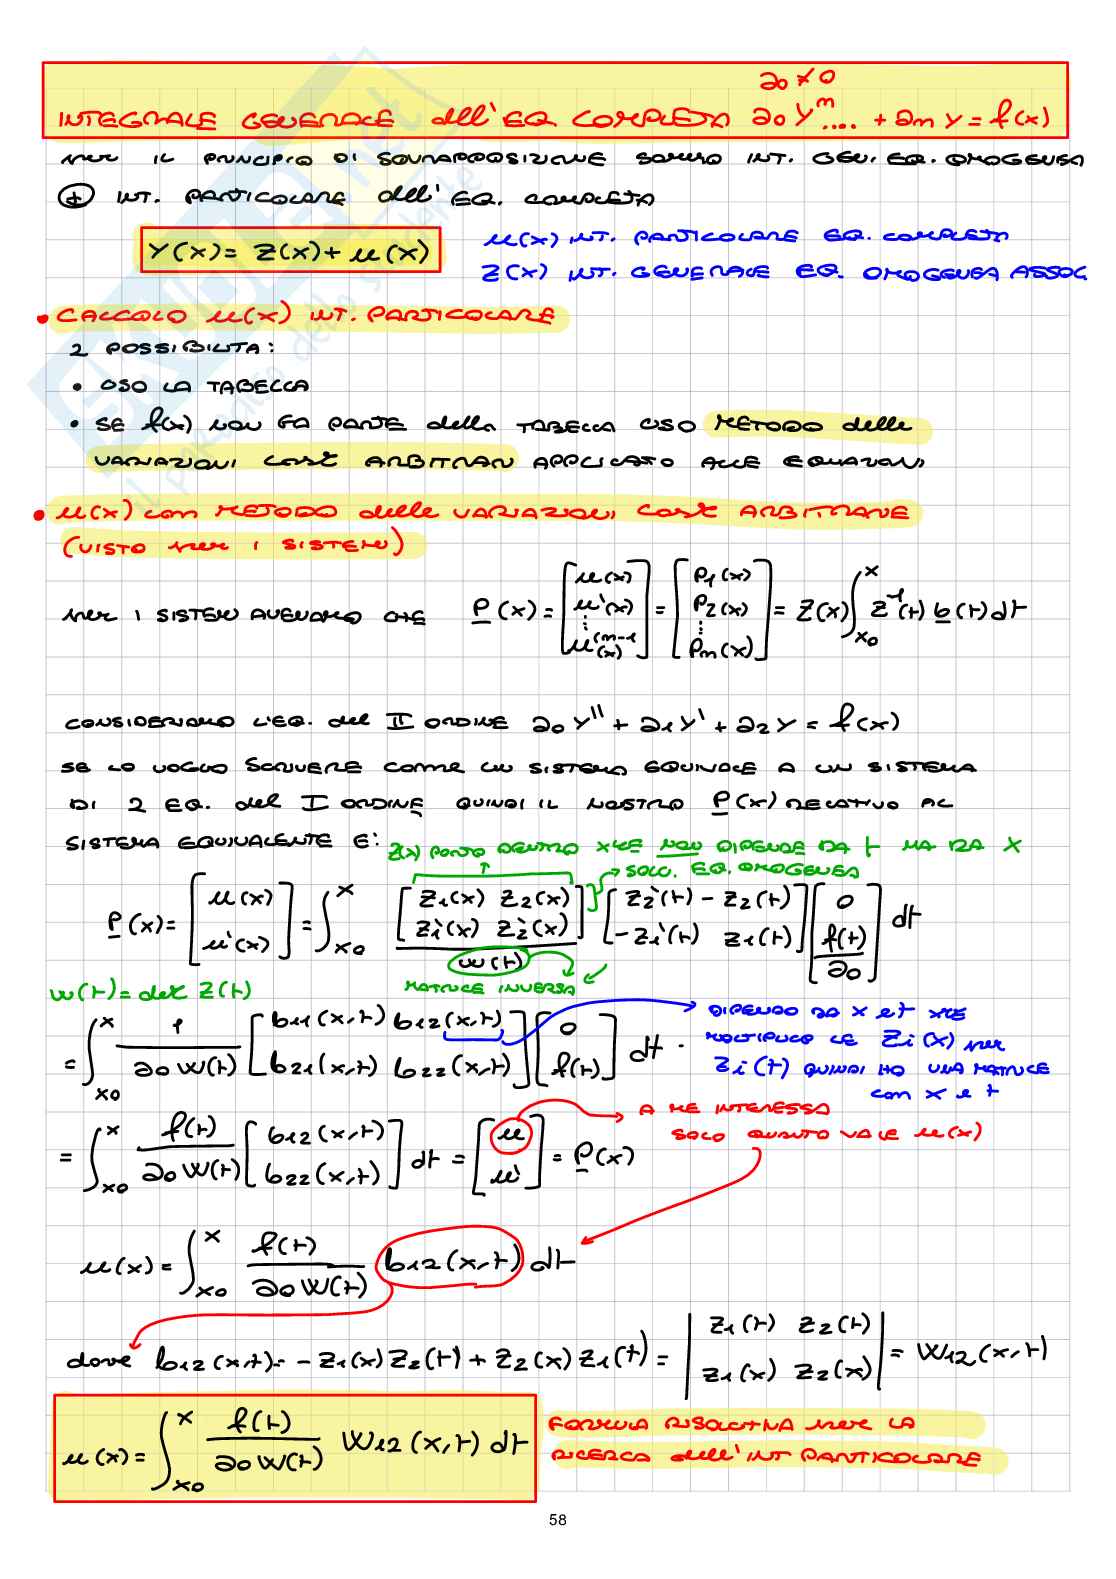 a₀ ≠ 0
INTEGRALE GENERALE dell'EQ. COMPLETA a₀ yⁿ .... + aₙ y = f(x)
per IL PRINCIPIO DI SOVRAPPOSIZIONE SOMMO INT. GEN. EQ. OMOGENEA
⊕ INT. PARTICOLARE dell'EQ. COMPLETA
Y(x) = Z(x) + u(x)
u(x) INT. PARTICOLARE EQ. COMPLETA
Z(x) INT. GENERALE EQ. OMOGENEA ASSOC.
• CALCOLO u(x) INT. PARTICOLARE
2 POSSIBILITA:
• USO LA TABELLA
• SE f(x) NON FA PARTE della TABELLA USO METODO delle
VARIAZIONI COST ARBITRARI APPLICATO ALLE EQUAZIONI
• u(x) con METODO delle VARIAZIONI COST ARBITRARIE
(VISTO per I SISTEMI)
per I SISTEMI AVEVAMO CHE P(x) = [u(x) u'(x) ⋮ u⁽ⁿ⁻¹⁾(x)] = [P₁(x) P₂(x) ⋮ Pₙ(x)] = Z(x) ∫ₓ₀ˣ Z⁻¹(t) b(t) dt
CONSIDERIAMO L'EQ. del II ORDINE a₀ y'' + a₁ y' + a₂ y = f(x)
SE LO VOGLIO SCRIVERE COME UN SISTEMA EQUIVALE A UN SISTEMA
DI 2 EQ. del I ORDINE QUINDI IL NOSTRO P(x) RELATIVO AL
SISTEMA EQUIVALENTE E':
Z(x) PORTO DENTRO XKE NON DIPENDE DA t MA DA X
SOLU. EQ. OMOGENEA
P(x) = [u(x) u'(x)] = ∫ₓ₀ˣ [Z₁(x) Z₂(x) Z₁'(x) Z₂'(x)] / W(t) [Z₂'(t) - Z₂(t) -Z₁'(t) Z₁(t)] [0 f(t)/a₀] dt
W(t) = det Z(t)
MATRICE INVERSA
= ∫ₓ₀ˣ 1/(a₀ W(t)) [b₁₁(x,t) b₁₂(x,t) b₂₁(x,t) b₂₂(x,t)] [0 f(t)] dt .
DIPENDO DA X e t XKE
MOLTIPLICO LE Zi(x) per
Zi(t) QUINDI HO UNA MATRICE
con x e t
= ∫ₓ₀ˣ f(t)/(a₀ W(t)) [b₁₂(x,t) b₂₂(x,t)] dt = [u u'] = P(x)
A ME INTERESSA
SOLO QUANTO VALE u(x)
u(x) = ∫ₓ₀ˣ f(t)/(a₀ W(t)) b₁₂(x,t) dt
dove b₁₂(x,t) = - Z₁(x) Z₂(t) + Z₂(x) Z₁(t) = |Z₁(t) Z₂(t) Z₁(x) Z₂(x)| = W₁₂(x,t)
u(x) = ∫ₓ₀ˣ f(t)/(a₀ W(t)) W₁₂(x,t) dt
FORMULA RISOLUTIVA per LA
RICERCA dell'INT PARTICOLARE
58